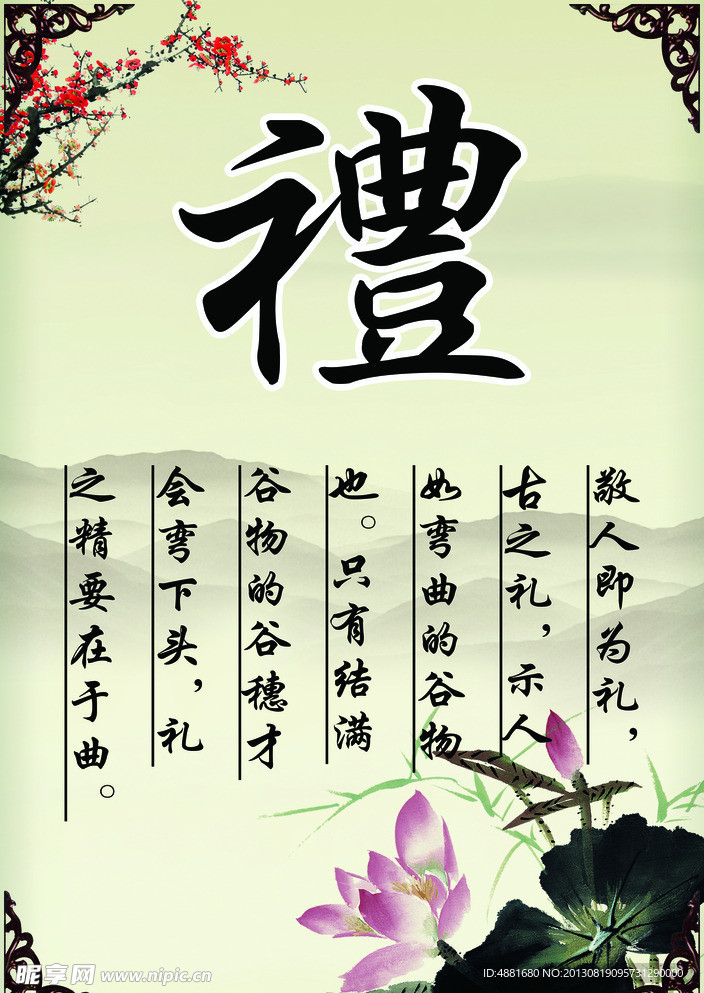 禮
敬人即为礼，
古之礼，示人
如弯曲的谷物
也。只有结满
谷物的谷穗才
会弯下头，礼
之精要在于曲。
昵享网 www.nipic.cn
ID:4881680 NO:20130819095731290000